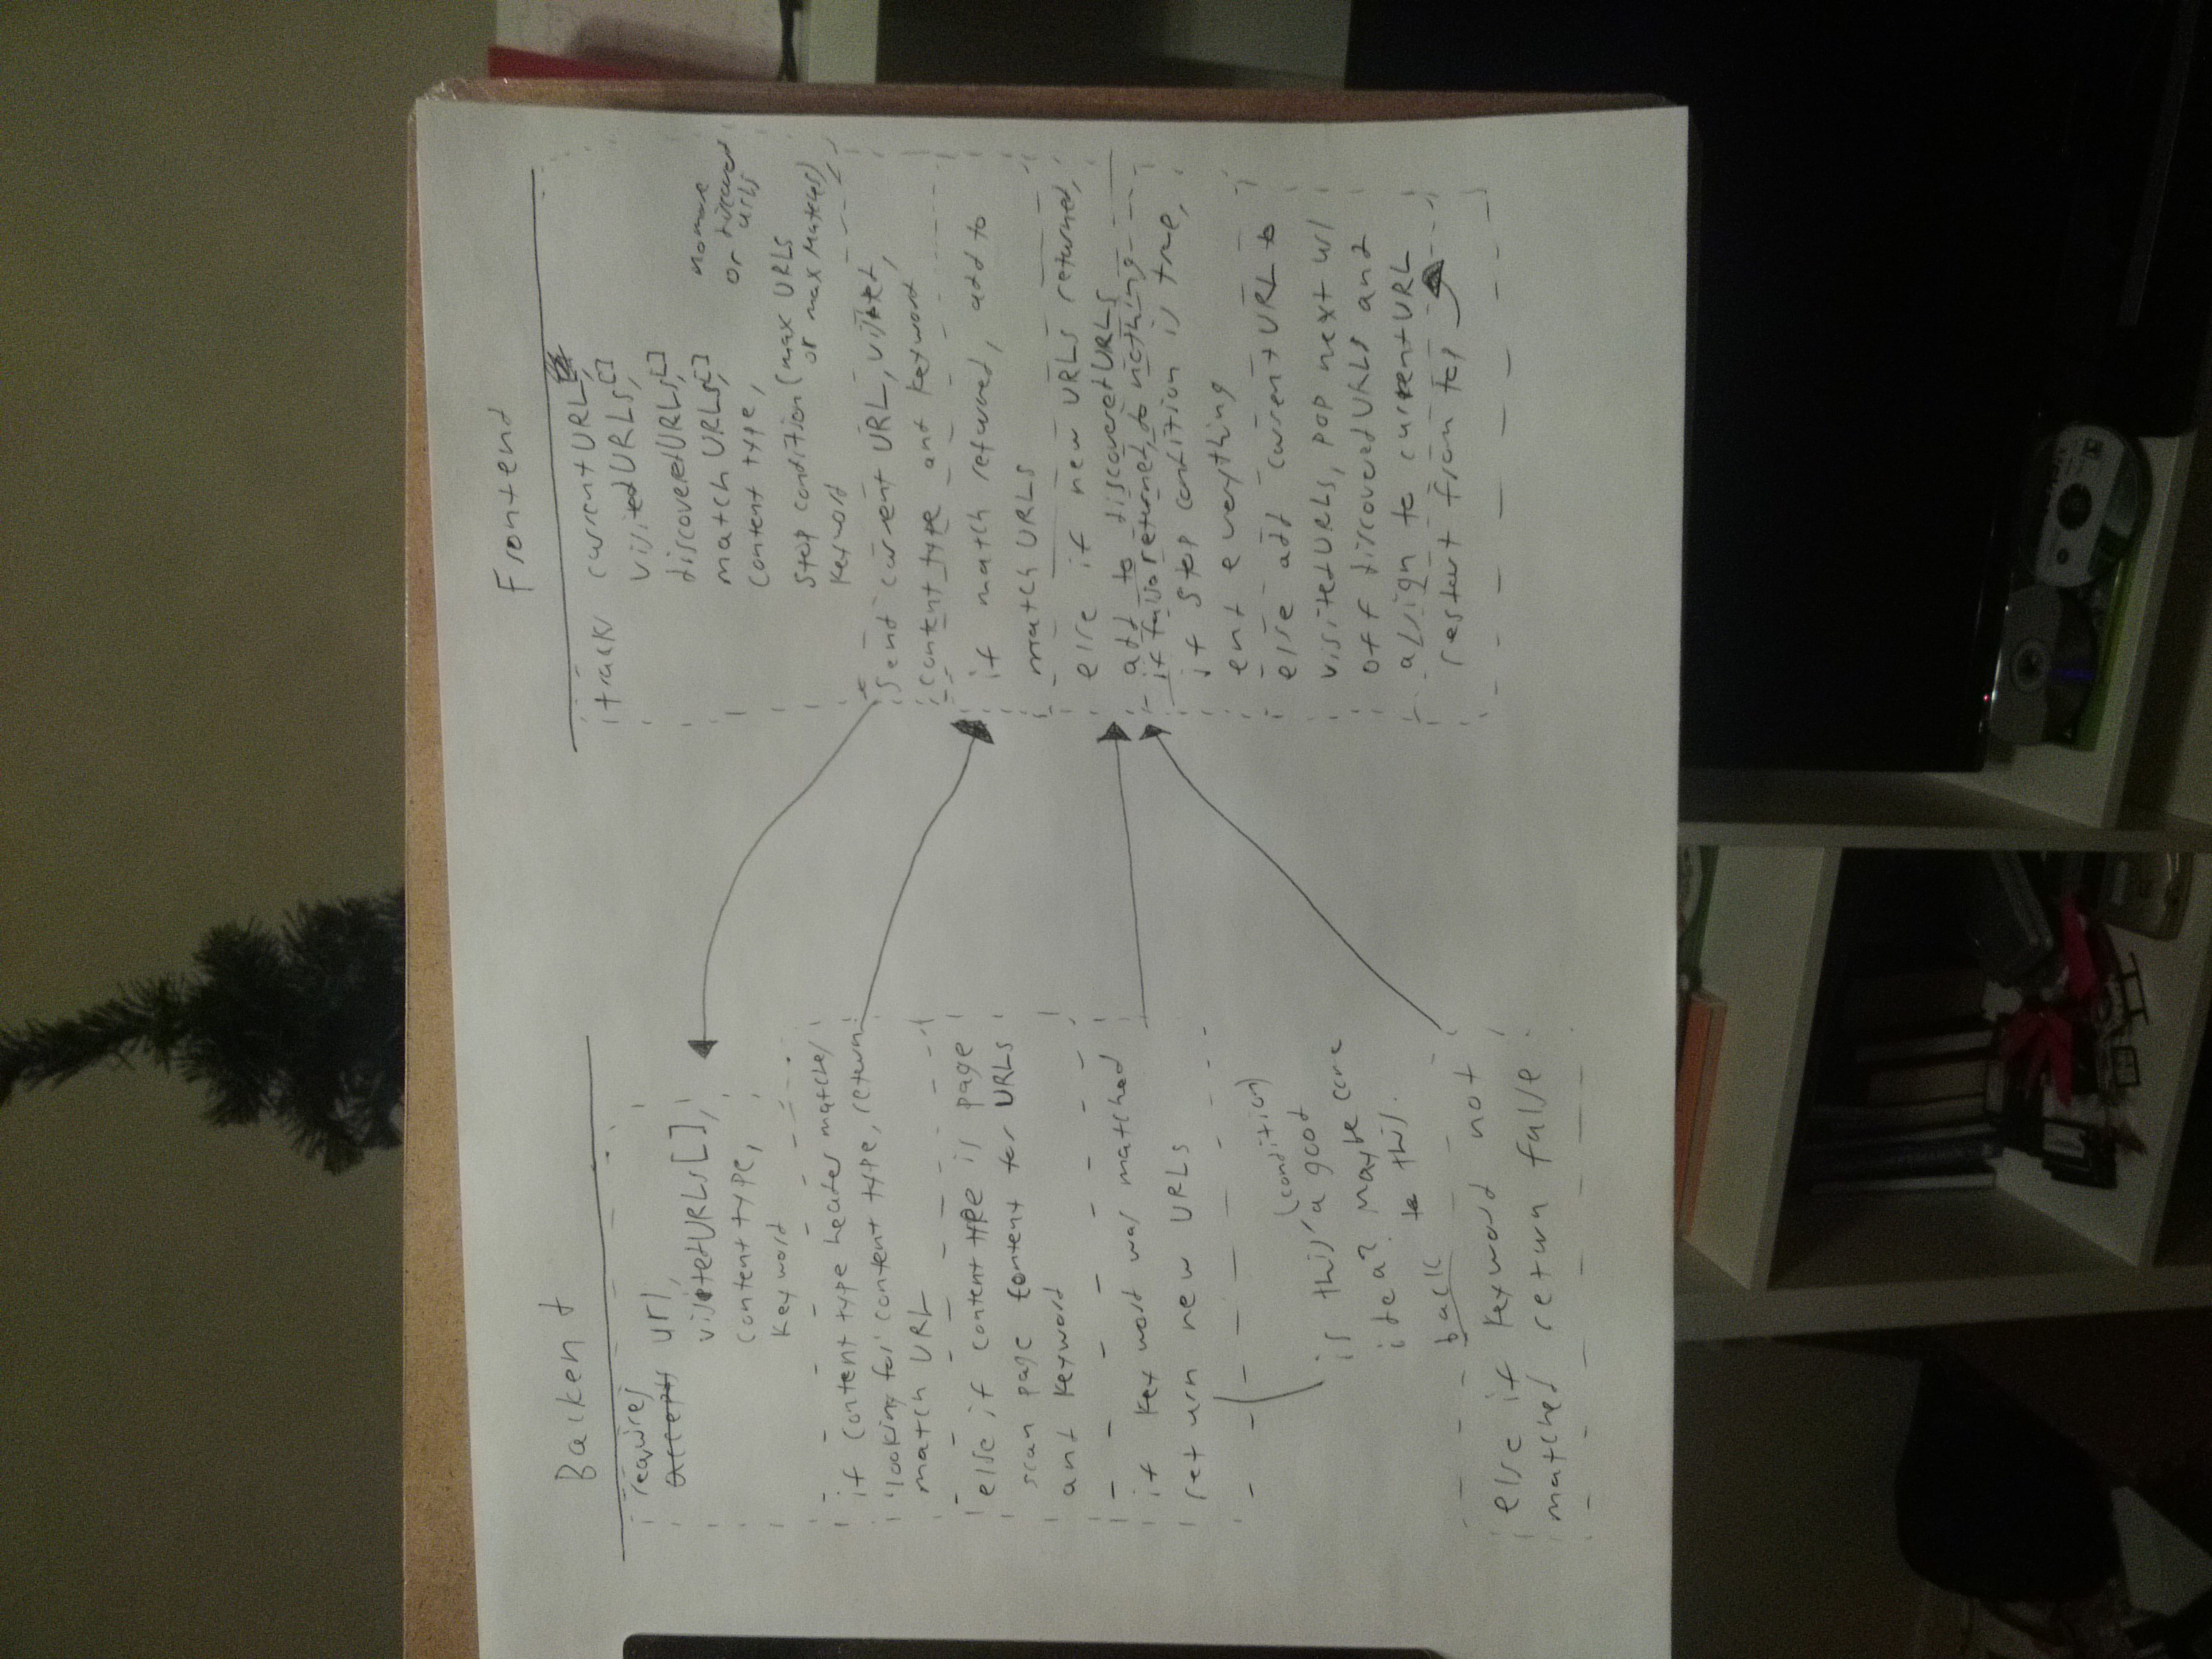 Backend
requires
accepts url,
visitedURLs[],
content type,
keyword
if content type header matches
'looking for' content type, return
match URL
else if content type is page
scan page content for URLs
and keyword
if keyword was matched
return new URLs
(condition)
is this a good
idea? Maybe come
back to this.
else if keyword not
matched return false
Frontend
tracks currentURL,
visitedURLs[],
discoveredURLs[],
match URLs[],
content type,
stop condition (max URLs
or max matches),
no more
or discovered
urls
keyword
Send current URL, visited,
content type and keyword
if match returned, add to
match URLs
else if new URLs returned,
add to discoveredURLs
if false returned, do nothing
if stop condition is true,
end everything
else add currentURL to
visitedURLs, pop next url
off discoveredURLs and
assign to currentURL
restart from top